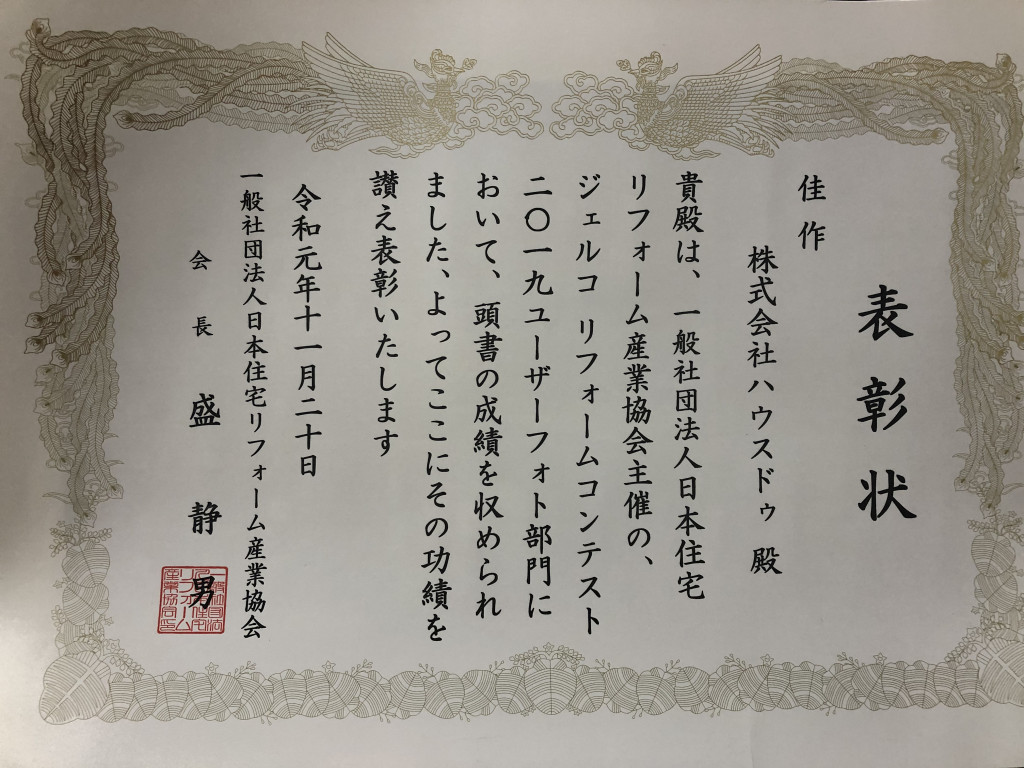 表彰状
佳作
株式会社ハウスドゥ 殿
貴殿は、一般社団法人日本住宅
リフォーム産業協会主催の、
ジェルコ リフォームコンテスト
二〇一九ユーザーフォト部門に
おいて、頭書の成績を収められ
ました、よってここにその功績を
讃え表彰いたします
令和元年十一月二十日
一般社団法人日本住宅リフォーム産業協会
会長 盛 静男